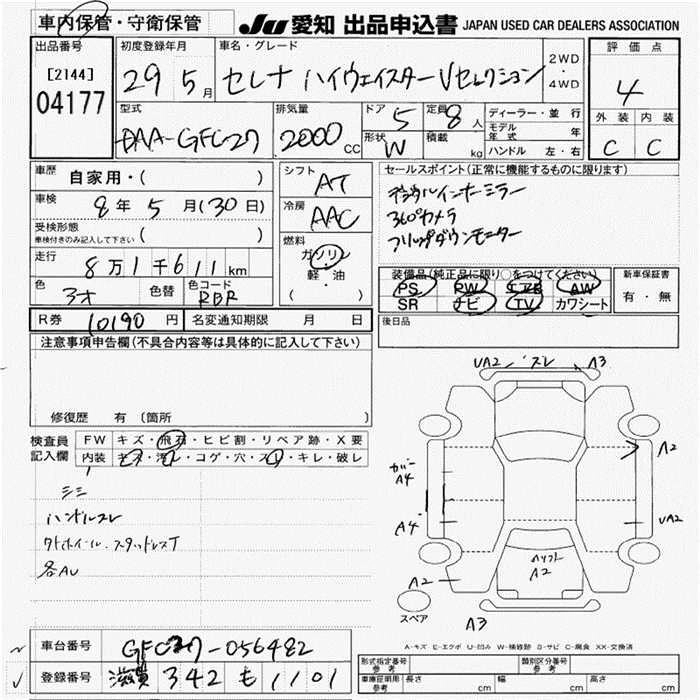 車内保管・守衛保管
JU 愛知 出品申込書 JAPAN USED CAR DEALERS ASSOCIATION
出品番号
[2144]
04177
初度登録年月
29 5月
車名・グレード
セレナ ハイウェイスターVセレクション
2WD
・
4WD
評価点
4
外装 内装
C C
型式
DAA-GFC27
排気量
2000 CC
ドア 5
形状 W
定員 8人
積載 kg
ディーラー・並行
モデル年式 年
ハンドル 左・右
車歴 自家用・( )
車検 8年 5月(30日)
受検形態
車検付きのみ記入して下さい ( )
走行 8万1千611km
色 3オ 色替 色コード RBR
シフト AT
冷房 AAC
燃料
ガソリン
・
軽・油
( )
セールスポイント(正常に機能するものに限ります)
デジタルインナーミラー
360°カメラ
フリップダウンモニター
装備品(純正品に限り○をつけてください)
PS PW エアB AW
SR ナビ TV カワシート
新車保証書
有・無
R券 10190円 名変通知期限 月 日
後日品
注意事項申告欄(不具合内容等は具体的に記入して下さい)
修復歴 有 (箇所 )
検査員記入欄
FW キズ・飛石・ヒビ割・リペア跡・X要
内装 キズ・汚レ・コゲ・穴・スレ・キレ・破レ
シミ
ハンドルスレ
各AU
UA2 スレ A3
A2
カバー
A4
A4
UA2
A2
A2
A3
スペア
A-キズ E-エクボ U-凹み W-補修跡 S-サビ C-腐食 XX-交換済
車台番号 GFC27-056482
登録番号 滋賀 342 も 1101
型式指定番号 参考
類別区分番号 参考
車庫証明用 参考 長さ cm 幅 cm 高さ cm